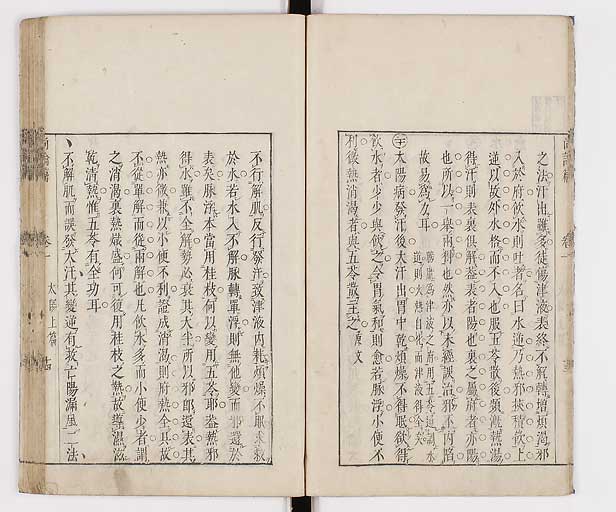 之法汗出雖多徒傷津液表終不解轉增煩渴邪
入於府飲水則吐者名曰水逆乃熱邪挾積飲上
逆以故外水格而不入也服五苓散後頻漑熱湯
得汗則表裏俱解蓋表者陽也裏之屬府者亦陽
也所以一舉兩得也然亦以未經誤治邪不內陷
故易爲力耳
膀胱爲津液之府用五苓通調水
道則火熱自化而津液得全矣
太陽病發汗後大汗出胃中乾煩燥不得眠欲得
飲水者少少與飲之令胃氣和則愈若脉浮小便不
利微熱消渴者與五苓散主之原文
不行解肌反行發汗致津液內耗煩燥不眠求救
於水若水入不解脉轉單浮則無他變而邪還於
表矣脉浮本當用桂枝何以變用五苓耶蓋熱邪
得水雖不全解勢必衰其大半所以邪卽還表其
熱亦微兼以小便不利證成消渴則府熱全具故
不從單解而從兩解也凡飲水多而小便少者謂
之消渴裏熱熾盛何可復用桂枝之熱故導濕滋
乾清熱惟五苓有全功耳
不解肌而誤發大汗其變逆有救亡陽漏風二法
卷一
太陽上篇